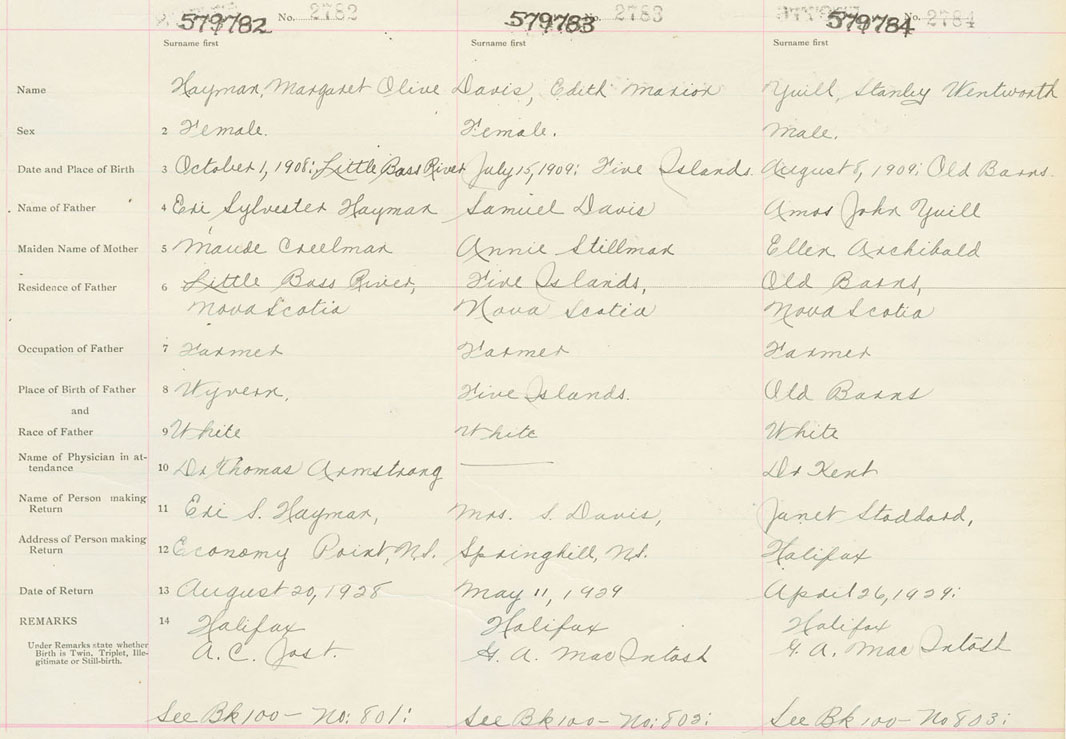 579782 No. 2782 579783 No. 2783 579784 No. 2784
Surname first Surname first Surname first
Name Hayman, Margaret Olive Davis, Edith Marion Yuill, Stanley Wentworth
Sex 2 Female. Female. Male.
Date and Place of Birth 3 October 1, 1908; Little Bass River July 15, 1909; Five Islands. August 8, 1909; Old Barns.
Name of Father 4 Eri Sylvester Hayman Samuel Davis Amos John Yuill
Maiden Name of Mother 5 Maude Creelman Annie Stillman Ellen Archibald
Residence of Father 6 Little Bass River, Five Islands, Old Barns,
Nova Scotia Nova Scotia Nova Scotia
Occupation of Father 7 Farmer Farmer Farmer
Place of Birth of Father 8 Wyvern. Five Islands. Old Barns
and
Race of Father 9 White White White
Name of Physician in at-
tendance 10 Dr Thomas Armstrong Dr Kent
Name of Person making
Return 11 Eri S. Hayman, Mrs. S. Davis, Janet Stoddard,
Address of Person making
Return 12 Economy Point, N.S. Springhill, N.S. Halifax
Date of Return 13 August 20, 1928 May 11, 1929 April 26, 1929;
REMARKS 14 Halifax Halifax Halifax
Under Remarks state whether
Birth is Twin, Triplet, Ille-
gitimate or Still-birth.
A. C. Jost. G. A. MacIntosh G. A. MacIntosh
See Bk 100 - No: 801; See Bk 100 - No: 802; See Bk 100 - No 803;